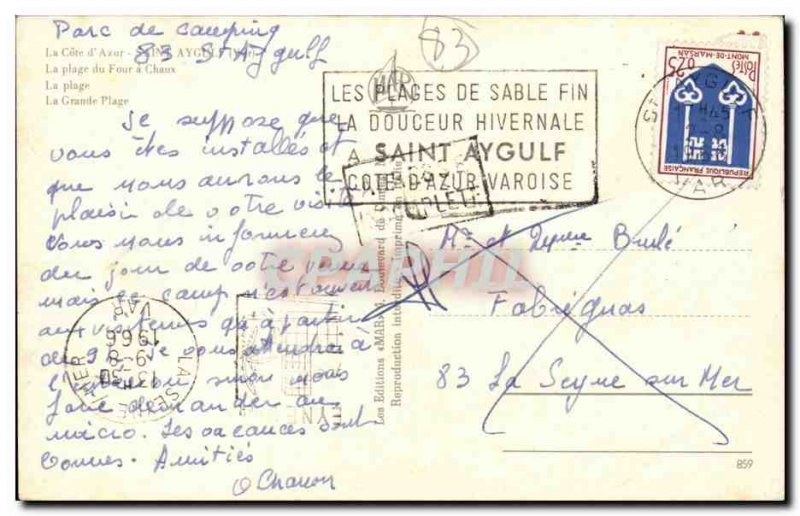 Parc de camping
83 St Aygulf
La Côte d'Azur - SAINT AYGULF (Var)
La plage du Four à Chaux
La plage
La Grande Plage
Je suppose que
vous êtes installés et
que nous aurons le
plaisir de votre visite
Vous nous informerez
du jour de votre venue
mais le camp n'est ouvert
aux visiteurs qu'à partir
de 9 je vous attendrai à
l'entrée ou sinon nous
faire demander au
micro. Les vacances sont
bonnes. Amitiés
83
LES PLAGES DE SABLE FIN
LA DOUCEUR HIVERNALE
A SAINT AYGULF
COTE D'AZUR VAROISE
MAR
Les Editions «MAR» Boulevard du
Reproduction interdite Imprimé en
Postes
0,25
MONT-DE-MARSAN
REPUBLIQUE FRANÇAISE
ST AYGULF
VAR
Mr et Brulé
Fabrégas
83 La Seyne sur Mer
LA SEYNE MER
13H30
9-8
1966
VAR
CPAPHIL
859